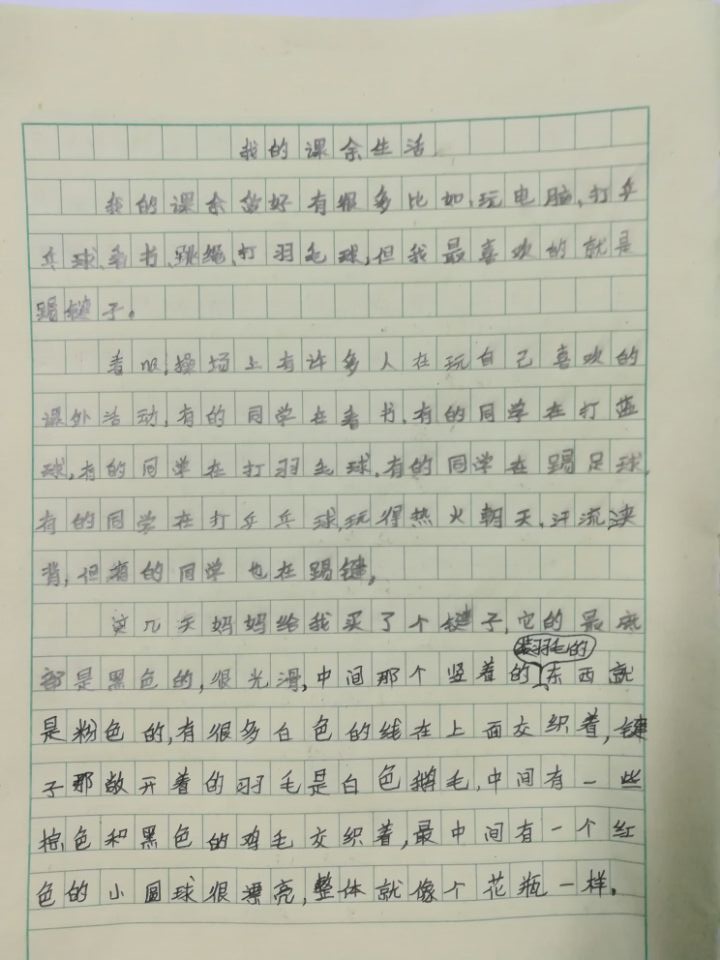 我的课余生活
我的课余爱好有很多比如,玩电脑,打乒
乓球、看书、跳绳、打羽毛球,但我最喜欢的就是
踢毽子。
看吧,操场上有许多人在玩自己喜欢的
课外活动,有的同学在看书,有的同学在打篮
球,有的同学在打羽毛球,有的同学在踢足球,
有的同学在打乒乓球,玩得热火朝天,汗流浃
背,但有的同学也在踢毽,
这几天妈妈给我买了个毽子,它的最底
装羽毛的
部是黑色的,很光滑,中间那个竖着的东西就
是粉色的,有很多白色的线在上面交织着,毽
子那散开着的羽毛是白色鹅毛,中间有一些
棕色和黑色的鸡毛交织着,最中间有一个红
色的小圆球很漂亮,整体就像个花瓶一样。